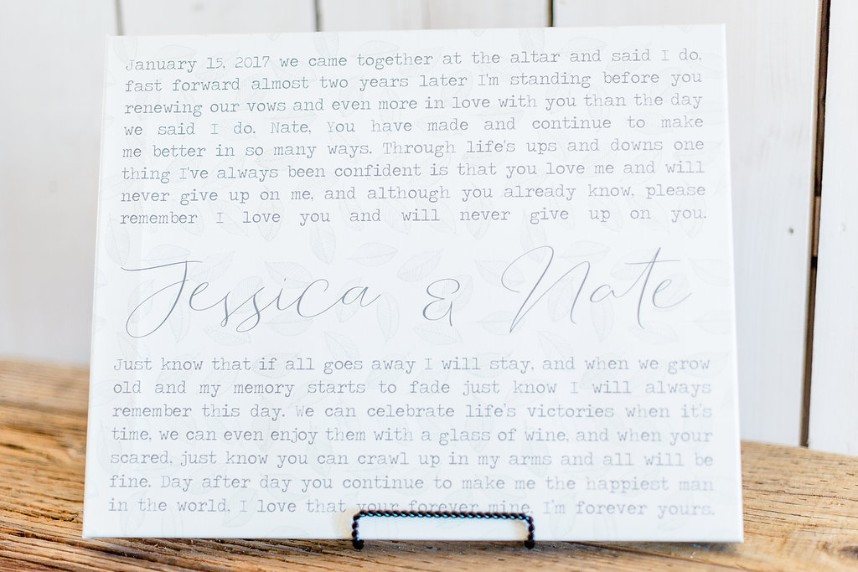 January 15, 2017 we came together at the altar and said I do,
fast forward almost two years later I'm standing before you
renewing our vows and even more in love with you than the day
we said I do. Nate, You have made and continue to make
me better in so many ways. Through life's ups and downs one
thing I've always been confident is that you love me and will
never give up on me, and although you already know, please
remember I love you and will never give up on you.
Jessica & Nate
Just know that if all goes away I will stay, and when we grow
old and my memory starts to fade just know I will always
remember this day. We can celebrate life's victories when it's
time, we can even enjoy them with a glass of wine, and when your
scared, just know you can crawl up in my arms and all will be
fine. Day after day you continue to make me the happiest man
in the world. I love that your forever mine. I'm forever yours.